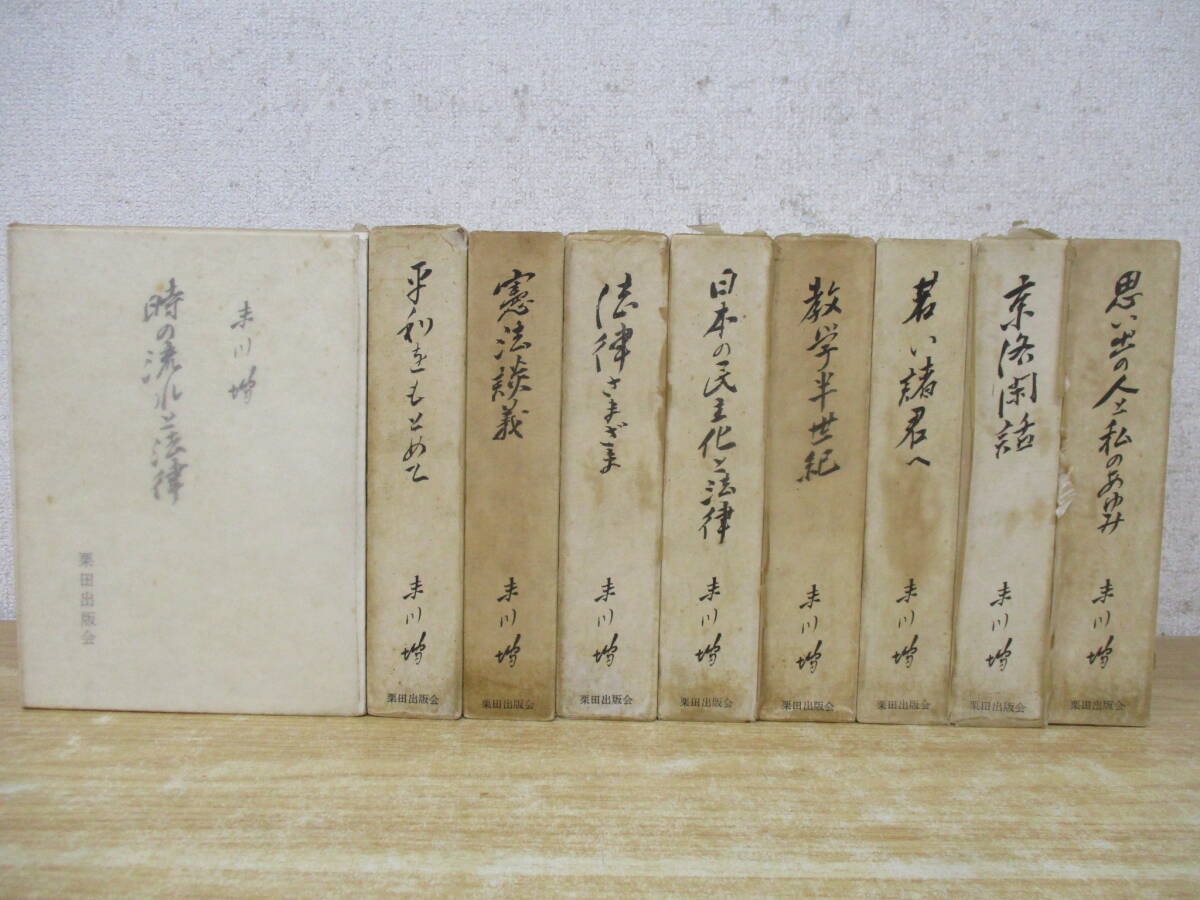 時の流れと法律
末川博
栗田出版会
平和をもとめて
末川博
栗田出版会
憲法談義
末川博
栗田出版会
法律さまざま
末川博
栗田出版会
日本の民主化と法律
末川博
栗田出版会
教学半世紀
末川博
栗田出版会
若い諸君へ
末川博
栗田出版会
京洛閑話
末川博
栗田出版会
思い出の人と私のあゆみ
末川博
栗田出版会